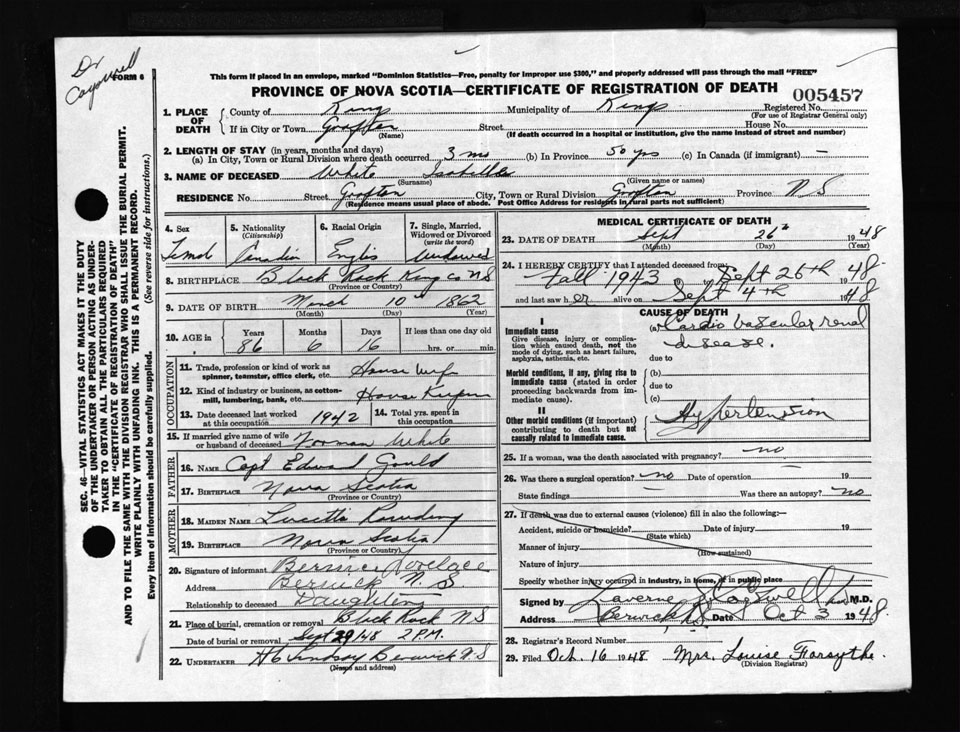 Dr
FORM 6
This form if placed in an envelope, marked "Dominion Statistics—Free, penalty for improper use $300," and properly addressed will pass through the mail "FREE"
PROVINCE OF NOVA SCOTIA—CERTIFICATE OF REGISTRATION OF DEATH
005457
1. PLACE OF DEATH
County of Kings Municipality of Kings Registered No.
(For use of Registrar General only)
If in City or Town Grafton Street House No.
(Name) (If death occurred in a hospital or institution, give the name instead of street and number)
2. LENGTH OF STAY (in years, months and days)
(a) In City, Town or Rural Division where death occurred 3 ms (b) In Province 50 yrs (c) In Canada (if immigrant) —
3. NAME OF DECEASED White
(Surname) (Given name or names)
RESIDENCE No. Street Grafton City, Town or Rural Division Grafton Province N S
(Residence means usual place of abode. Post Office Address for residents in rural parts not sufficient)
4. Sex 5. Nationality (Citizenship) 6. Racial Origin 7. Single, Married, Widowed or Divorced (write the word)
Femal Canadian Englis Widowed
8. BIRTHPLACE Black Rock Kings Co N S
(Province or Country)
9. DATE OF BIRTH March 10 1862
(Month) (Day) (Year)
10. AGE in Years Months Days If less than one day old
86 6 16 hrs. or min.
OCCUPATION
11. Trade, profession or kind of work as spinner, teamster, office clerk, etc. House Wife
12. Kind of industry or business, as cotton-mill, lumbering, bank, etc. House Keeper
13. Date deceased last worked at this occupation 1942 14. Total yrs. spent in this occupation
15. If married give name of wife or husband of deceased Norman White
FATHER
16. NAME Capt Edward Gould
17. BIRTHPLACE Nova Scotia
(Province or Country)
MOTHER
18. MAIDEN NAME
19. BIRTHPLACE Nova Scotia
(Province or Country)
20. Signature of informant Bernice
Address Berwick N. S.
Relationship to deceased Daughter
21. Place of burial, cremation or removal Black Rock N S
Date of burial or removal Sept 29/48 2 P.M.
22. UNDERTAKER Lindsay Berwick N. S
(Name and address)
MEDICAL CERTIFICATE OF DEATH
23. DATE OF DEATH Sept 26 1948
(Month) (Day) (Year)
24. I HEREBY CERTIFY that I attended deceased from
fall 1943 to Sept 26th 1948
and last saw her alive on Sept 4th 1948
CAUSE OF DEATH
I
Immediate cause
Give disease, injury or complication which caused death, not the mode of dying, such as heart failure, asphyxia, asthenia, etc.
(a) Cardio vascular renal
disease.
due to
Morbid conditions, if any, giving rise to immediate cause (stated in order proceeding backwards from immediate cause).
(b)
due to
(c)
II
Other morbid conditions (if important) contributing to death but not causally related to immediate cause.
Hypertension
25. If a woman, was the death associated with pregnancy? no
26. Was there a surgical operation? no Date of operation 19
State findings Was there an autopsy? no
27. If death was due to external causes (violence) fill in also the following:—
Accident, suicide or homicide? Date of injury 19
(State which)
Manner of injury
(How sustained)
Nature of injury
Specify whether injury occurred in industry, in home, or in public place
Signed by M.D.
Address Berwick N.S. Date Oct 3 1948
28. Registrar's Record Number
29. Filed Oct. 16 1948 Mrs. Louise Forsythe
(Division Registrar)
SEC. 46—VITAL STATISTICS ACT MAKES IT THE DUTY
OF THE UNDERTAKER OR PERSON ACTING AS UNDERTAKER
TO OBTAIN ALL THE PARTICULARS REQUIRED
IN THE "CERTIFICATE OF REGISTRATION OF DEATH"
AND TO FILE THE SAME WITH THE DIVISION REGISTRAR WHO SHALL ISSUE THE BURIAL PERMIT.
WRITE PLAINLY WITH UNFADING INK. THIS IS A PERMANENT RECORD.
Every item of information should be carefully supplied. (See reverse side for instructions.)